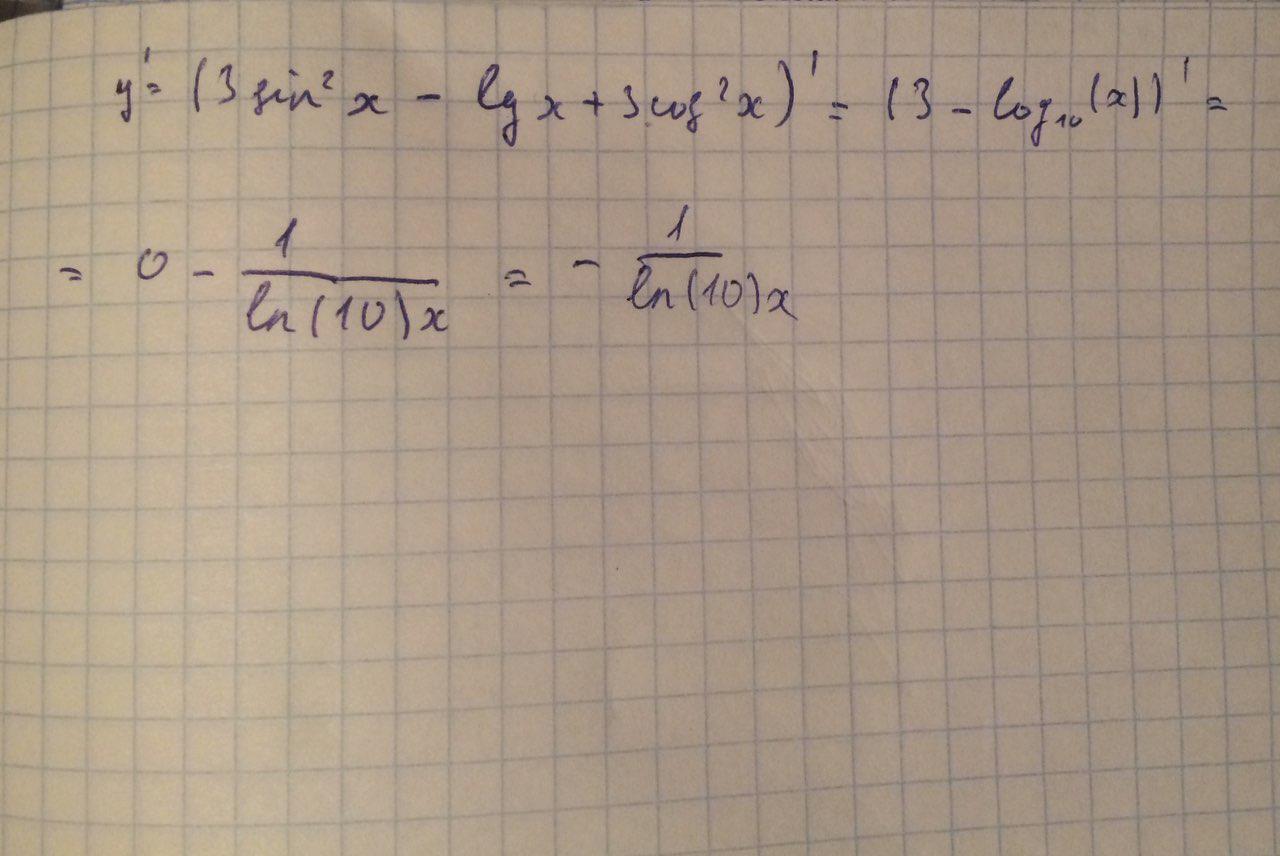 y' = (3 sin² x - lg x + 3 cos² x)' = (3 - log₁₀(x))' =
= 0 - 1/(ln(10)x) = - 1/(ln(10)x)